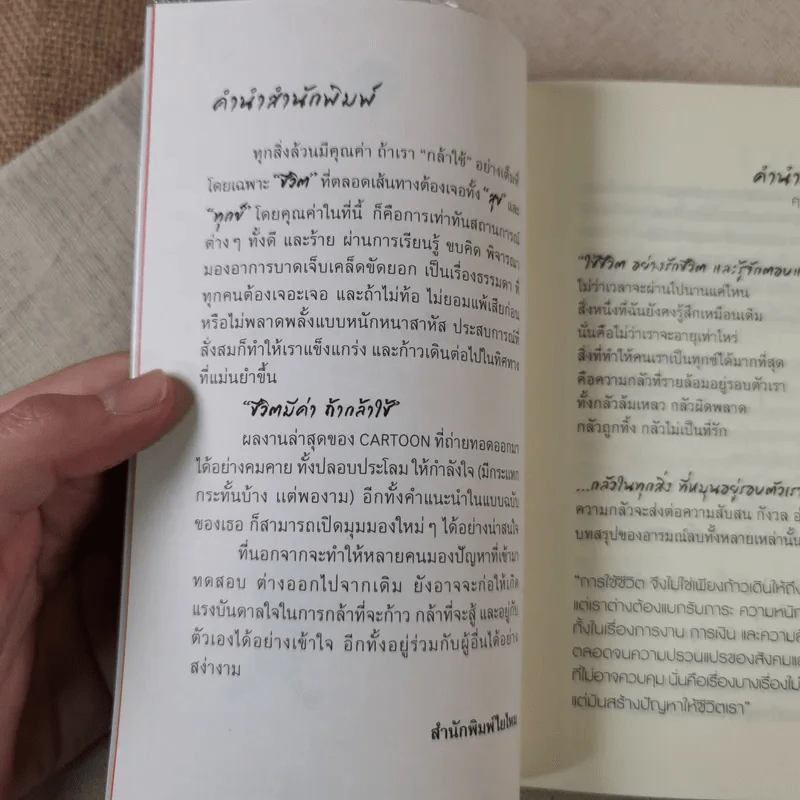 คำนำสำนักพิมพ์
ทุกสิ่งล้วนมีคุณค่า ถ้าเรา “กล้าใช้” อย่างเต็มที่
โดยเฉพาะ “ชีวิต” ที่ตลอดเส้นทางต้องเจอทั้ง “สุข” และ
“ทุกข์” โดยคุณค่าในที่นี้ ก็คือการเท่าทันสถานการณ์
ต่างๆ ทั้งดี และร้าย ผ่านการเรียนรู้ ขบคิด พิจารณา
มองอาการบาดเจ็บเคล็ดขัดยอก เป็นเรื่องธรรมดา ที่
ทุกคนต้องเจอะเจอ และถ้าไม่ท้อ ไม่ยอมแพ้เสียก่อน
หรือไม่พลาดพลั้งแบบหนักหนาสาหัส ประสบการณ์ที่
สั่งสมก็ทำให้เราแข็งแกร่ง และก้าวเดินต่อไปในทิศทาง
ที่แม่นยำขึ้น
“ชีวิตมีค่า ถ้ากล้าใช้”
ผลงานล่าสุดของ CARTOON ที่ถ่ายทอดออกมา
ได้อย่างคมคาย ทั้งปลอบประโลม ให้กำลังใจ (มีกระแทก
กระทั้นบ้าง แต่พองาม) อีกทั้งคำแนะนำในแบบฉบับ
ของเธอ ก็สามารถเปิดมุมมองใหม่ๆ ได้อย่างน่าสนใจ
ที่นอกจากจะทำให้หลายคนมองปัญหาที่เข้ามา
ทดสอบ ต่างออกไปจากเดิม ยังอาจจะก่อให้เกิด
แรงบันดาลใจในการกล้าที่จะก้าว กล้าที่จะสู้ และอยู่กับ
ตัวเองได้อย่างเข้าใจ อีกทั้งอยู่ร่วมกับผู้อื่นได้อย่าง
สง่างาม
สำนักพิมพ์ใยไหม
คำนำ
“ใช้ชีวิต อย่างรักชีวิต และรู้จักตอบแ
ไม่ว่าเวลาจะผ่านไปนานแค่ไหน
สิ่งหนึ่งที่ฉันยังคงรู้สึกเหมือนเดิม
นั่นคือไม่ว่าเราจะอายุเท่าไหร่
สิ่งที่ทำให้คนเราเป็นทุกข์ได้มากที่สุด
คือความกลัวที่รายล้อมอยู่รอบตัวเรา
ทั้งกลัวล้มเหลว กลัวผิดพลาด
กลัวถูกทิ้ง กลัวไม่เป็นที่รัก
...กลัวในทุกสิ่ง ที่หมุนอยู่รอบตัวเรา
ความกลัวจะส่งต่อความสับสน กังวล
บทสรุปของอารมณ์ลบทั้งหลายเหล่านั้น
“การใช้ชีวิต จึงไม่ใช่เพียงก้าวเดินให้ถึง
แต่เราต่างต้องแบกรับภาระ ความหนัก
ทั้งในเรื่องการงาน การเงิน และความสั
ตลอดจนความปรวนแปรของสังคมแล
ที่ไม่อาจควบคุม นั่นคือเรื่องบางเรื่องไม่
แต่มันสร้างปัญหาให้ชีวิตเรา”